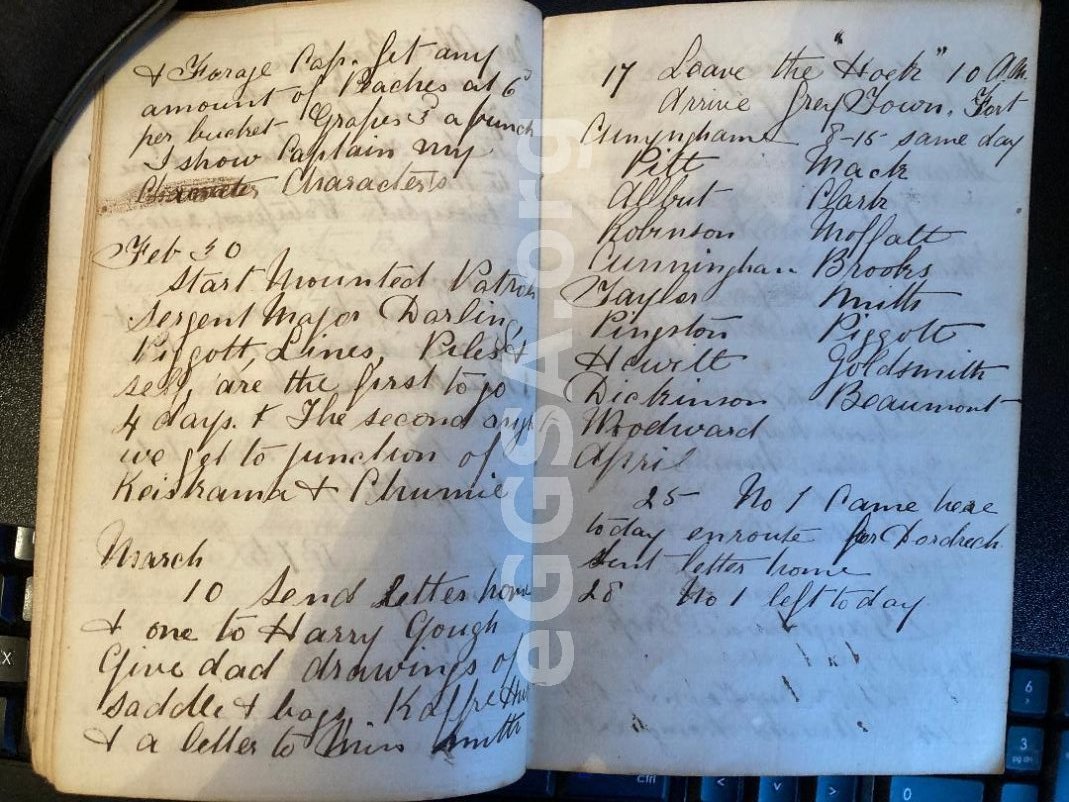 & Forage Cap. Get any
amount of Peaches at 6d
per bucket Grapes 3d a bunch
I show Captain my
Characters Characters
Feb 30
Start Mounted Patrol
Sergent Major Darling,
Piggott, Lines, Piles &
self, are the first to go
4 days. & The second night
we get to junction of
Keiskama & Chumie
March
10 Send Letter home
& one to Harry Gough
Give dad drawings of
saddle & bags. Kaffre Hut
& a letter to Miss Smith
17 Leave the "Hoek" 10 A.M.
Arrive Grey Town, Fort
Cunyngham 8-15 same day
Pitt Mack
Allbut Clark
Robinson Moffatt
Cunningham Brooks
Taylor Smith
Pingston Piggott
Hewett Goldsmith
Dickinson Beaumont
Woodward
April
25 No 1 Came here
today enroute for Dordrech
sent letter home
28 No 1 left today
eGGSA.org
X
Ctrl
<
v
>
6
3
pg dn
0